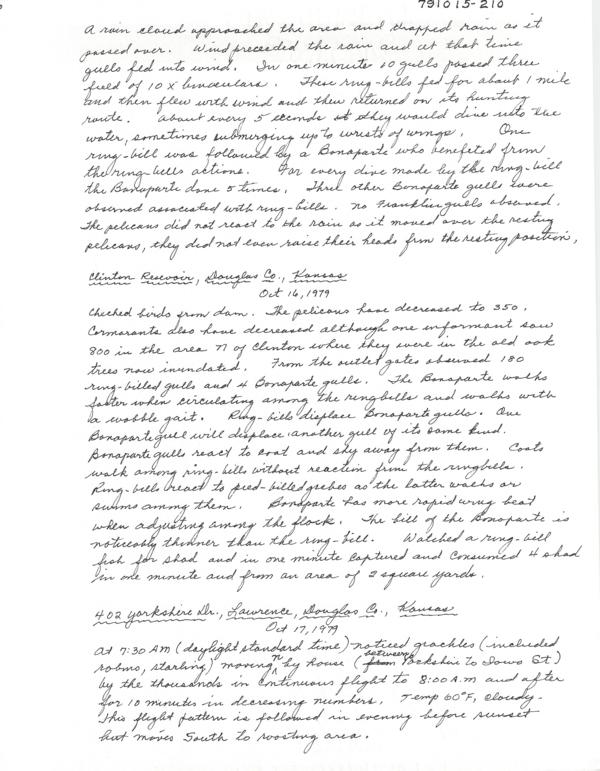 791015-210
A rain cloud approached the area and dropped rain as it
passed over. Wind preceeded the rain and at that time
gulls fed into wind. In one minute 10 gulls passed three
field of 10 X binoculars. These ring-bills fed for about 1 mile
and then flew with wind and then returned on its hunting
route. About every 5 seconds they would dive into the
water, sometimes submerging up to wrists of wings. One
ring-bill was followed by a Bonaparte who benefited from
the ring-bells actions. For every dive made by the ring-bill
the Bonaparte done 5 times. Three other Bonaparte gulls were
observed associated with ring-bills. No Franklin gulls observed.
The pelicans did not react to the rain as it moved over the resting
pelicans, they did not even raise their heads from the resting position.
Clinton Resevoir, Douglas Co., Kansas
Oct 16, 1979
Checked birds from dam. The pelicans have decreased to 350.
Cormorants also have decreased although one informant saw
800 in the area N of Clinton where they were in the old oak
trees now inundated. From the outlet gates observed 180
ring-billed gulls and 4 Bonaparte gulls. The Bonaparte walks
faster when circulating among the ringbills and walks with
a wobble gait. Ring-bills displace Bonaparte gulls. One
Bonaparte gull will displace another gull of its same kind.
Bonaparte gulls react to coot and shy away from them. Coots
walk among ring-bills without reaction from the ringbills.
Ring-bills react to pied-billed grebes as the latter walks or
swims among them. Bonaparte has more rapid wing beat
when adjusting among the flock. The bill of the Bonaparte is
noticeably thinner than the ring-bill. Watched a ring-bill
fish for shad and in one minute captured and consumed 4 shad
in one minute and from an area of 2 square yards.
402 Yorkshire Dr., Lawrence, Douglas Co., Kansas
Oct 17, 1979
At 7:30 AM (daylight standard time) noticed grackles (included
robins, starling) moving N by house (from between Yorkshire to Iowa St)
by the thousands in continuous flight to 8:00 A.M and after
for 10 minutes in decreasing numbers. Temp 60°F, cloudy.
This flight pattern is followed in evening before sunset
but moves South to roosting area.